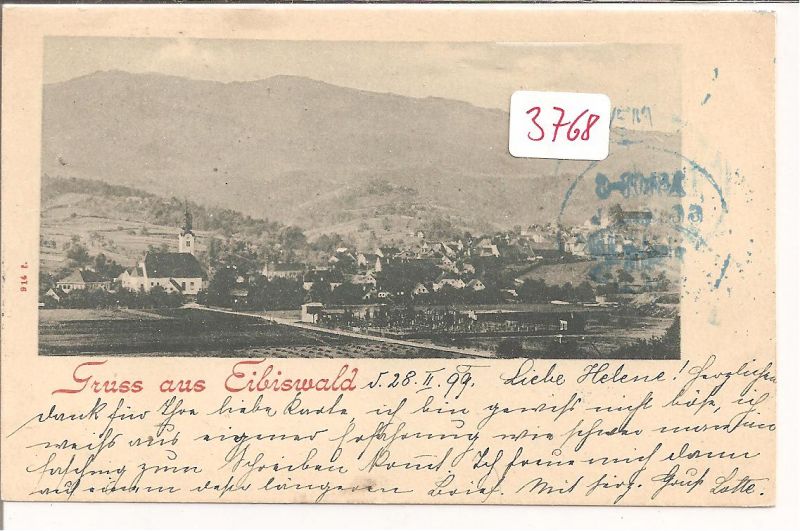 3768
914 r.
Gruss aus Eibiswald d. 28. II. 99. Liebe Helene! Herzlichen
dank für Ihre liebe Karte, ich bin gewiß nicht böse, ich
weiß aus eigener Erfahrung wie schwer man im
Fasching zum Schreiben kommt. Ich freue mich dann
auf einen desto längeren Brief. Mit herz. Gruß Lotte.